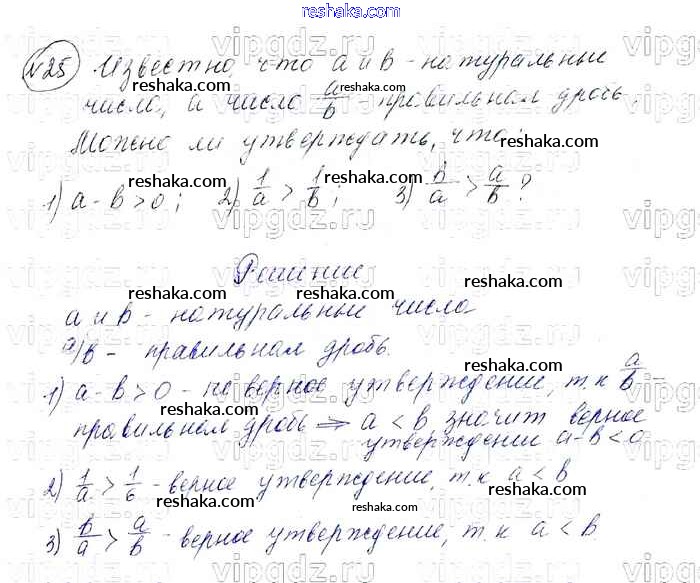 reshaka.com
№25 Известно, что a и b - натуральные
число, а число a/b - правильная дробь.
Можно ли утверждать, что:
1) a - b > 0; 2) 1/a > 1/b; 3) b/a > a/b?
Решение
a и b - натуральные число
a/b - правильная дробь.
1) a - b > 0 - не верное утверждение, т.к a/b -
правильная дробь ⇒ a < b, значит верное
утверждении a - b < 0
2) 1/a > 1/b - верное утверждение, т.к a < b
3) b/a > a/b - верное утверждение, т.к a < b.